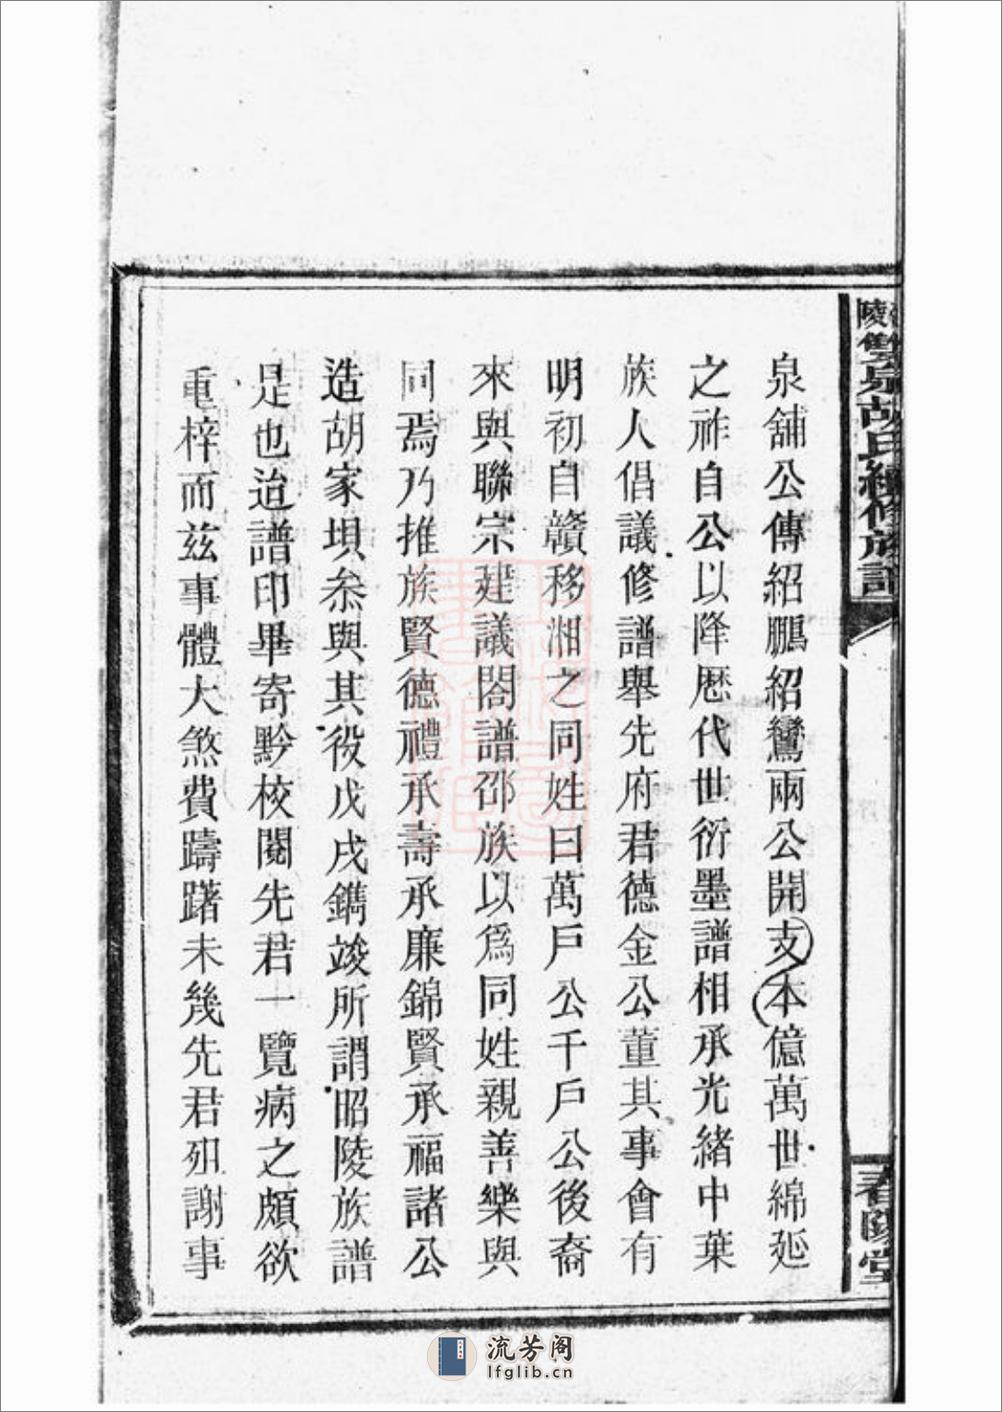 陵雙泉胡氏續修族譜
春陽堂
泉舖公傳紹鵬紹鸞兩公開支本億萬世綿延
之祚自公以降歷代世衍墨譜相承光緒中葉
族人倡議修譜舉先府君德金公董其事會有
明初自贛移湘之同姓曰萬戶公千戶公後裔
來與聯宗建議閤譜邵族以爲同姓親善樂與
同焉乃推族賢德禮承壽承廉錦賢承福諸公
造胡家垻叅與其役戊戌鐫竣所謂昭陵族譜
是也迨譜印畢寄黔校閱先君一覽病之頗欲
重梓而玆事體大煞費躊躇未幾先君歿謝事
流芳阁
lfglib.cn